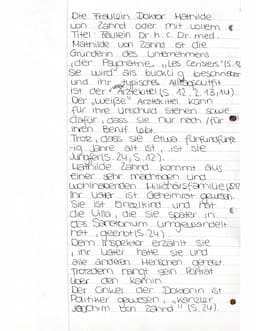 Die Fräulein Doktor Mathilde
von Zahnd oder mit vollem
Titel Fräulein Dr. h. c. Dr. med.
Mathilde von Zahnd ist die
Gründerin des Unternehmens
der Psychiatrie „Les Cerisiers"(S.
Sie wird als bucklig beschrieben
und ihr typisches
ist der Arztkittel (S. 12, Z. 13, 14).
Der „weiße" Arztkittel kann
für ihre Unschuld stehen sowie
dafür, dass sie nur noch für
ihren Beruf lebt.
Trotz, dass sie etwa fünfundfünfz-
ig Jahre alt ist, ist sie
Jungfer (S. 24, S. 12).
Mathilde Zahnd kommt aus
einer sehr mächtigen und
wohlhabenden
Ihr Vater ist Geheimrat gewesen.
Sie ist Einzelkind und hat
die Villa, die sie später in
das Sanatorium umgewandelt
hat, geerbt (S. 24).
Dem Inspektor erzählt sie
, ihr Vater hatte sie und
alle anderen Menschen gehasst.
Trotzdem hängt sein Porträt
über den Kamin.
Der Onkel der Doktorin ist
Politiker gewesen, „Kanzler
Joachim von Zahnd" (S. 24).